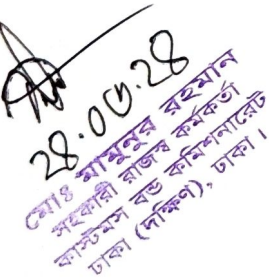 ২৪.০৩.২৪
মোঃ মামুনুর রহমান
সহকারী রাজস্ব কর্মকর্তা
কাস্টমস বন্ড কমিশনারেট
ঢাকা (দক্ষিণ), ঢাকা।